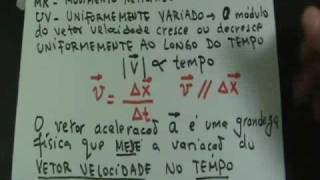 MR - MOVIMENTO RETILÍNEO
UV - UNIFORMEMENTE VARIADO → O módulo
do vetor velocidade cresce ou decresce
UNIFORMEMENTE AO LONGO DO TEMPO
|V⃗| ∝ tempo
v⃗ = Δx⃗/Δt   v⃗ // Δx⃗
O vetor aceleração a⃗ é uma grandeza
física que MEDE a variação do
VETOR VELOCIDADE NO TEMPO